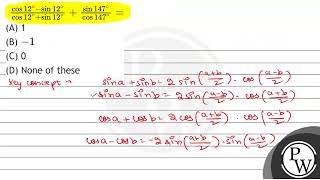 cos 12° − sin 12° / cos 12° + sin 12° + sin 147° / cos 147° =
(A) 1
(B) −1
(C) 0
(D) None of these
Key concept → sin a + sin b = 2 sin (a+b / 2) · cos (a−b / 2)
sin a − sin b = 2 sin (a−b / 2) · cos (a+b / 2)
cos a + cos b = 2 cos (a+b / 2) · cos (a−b / 2)
cos a − cos b = −2 sin (a+b / 2) · sin (a−b / 2)
PW